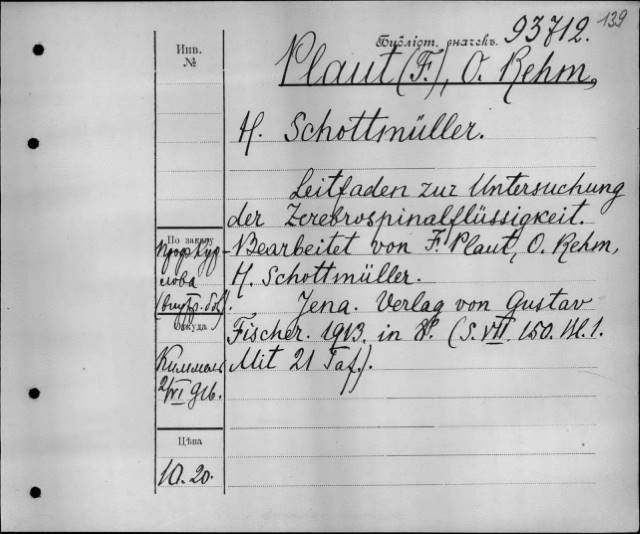 139
Инв.
№
Библіот. значекъ. 93712.
Plaut (F.), O. Rehm,
H. Schottmüller.
Leitfaden zur Untersuchung
der Zerebrospinalflüssigkeit.
Bearbeitet von F. Plaut, O. Rehm,
H. Schottmüller.
Jena. Verlag von Gustav
Fischer. 1913. in 8°. (S. VII. 150. Bl. 1.
Mit 21 Taf.).
По заказу
проф. Кур-
лова
(внутр. бол).
Откуда
Киммель
2/VI 916.
Цѣна
10. 20.